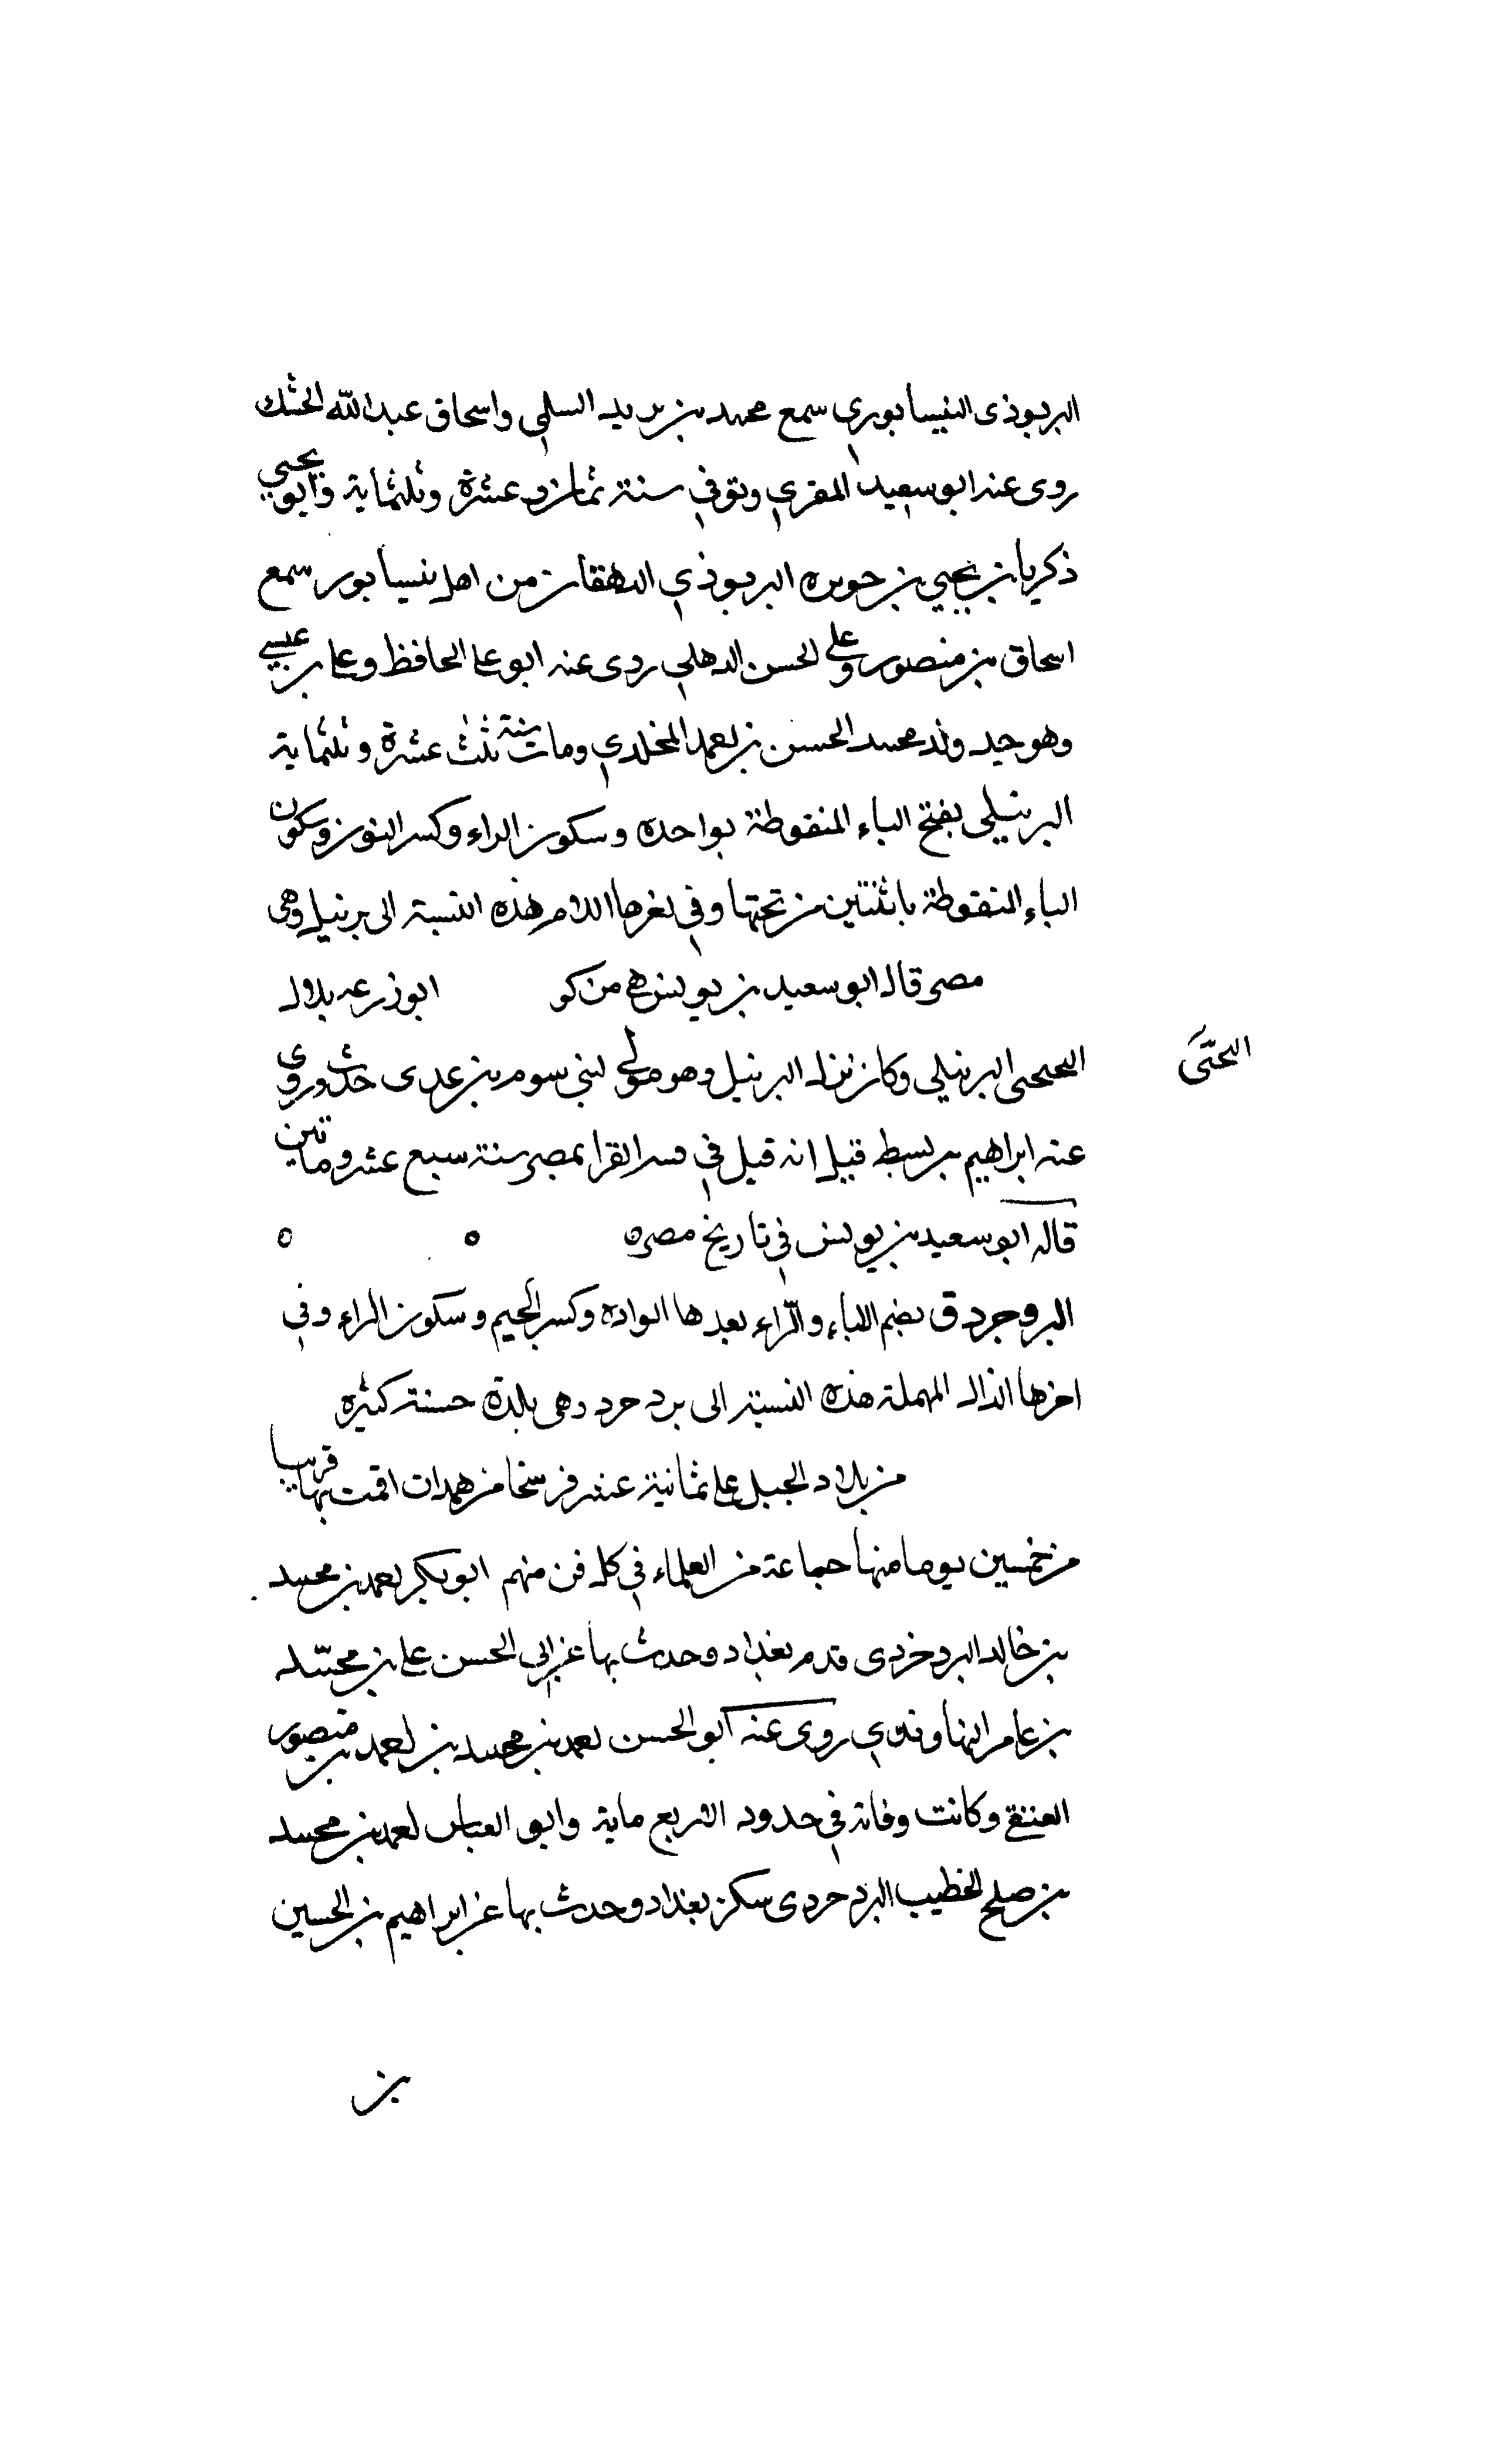 البربوذى النيسابوري سمع محمد بن يزيد السلمي واسحاق عبد الله الخشك
روى عنه ابو سعيد المقري وتوفي سنة ثمان عشرة وثلثماية وابو يحيي
ذكريا بن يحيي بن حويره البربوذي الدهقان من اهل نيسابور سمع
اسحاق بن منصور وعلي الحسن الدهلي روى عنه ابو علي الحافظ وعلي بن عيسي
وهو جد ولد محمد الحسن بن احمد المخلدي ومات سنة ثلث عشرة وثلثماية
البرنيلى بفتح الباء المنقوطة بواحده وسكون الراء وكسر النون وسكون
الياء المنقوطة باثنتين من تحتها وفي اخرها اللام هذه النسبة الى برنيل وهى
مصر قال ابو سعيد بن يونس هى من كو ابو زرعه بلال
التجيبى البرنيلي وكان ينزل البرنيل وهو مولي لبني سوم بن عدى حدث وروى
عنه ابراهيم قيل انه قتل في القرا بمصر سنة سبع عشر وماتين
قاله ابو سعيد بن يونس في تاريخ مصره
البروجردى بضم الباء والراء بعدها الواو وكسر الجيم وسكون الراء وفي
اخرها الدال المهملة هذه النسبة الى بروجرد وهى بلدة حسنة كثيره
من بلاد الجبل على ثمانية عشر فرسخا من همدان اقمت بها قريبا
من خمسين يوما منها جماعة من العلماء في كل فن منهم ابو بكر احمد بن محمد
بن خالد البروجردى قدم بغداد وحدث بها عن ابي الحسن علي بن محمد
بن عامر النهاوندي روى عنه ابو الحسن احمد بن محمد بن احمد بن منصور
العتيقي وكانت وفاته في حدود الاربع ماية وابو العباس احمد بن محمد
بن صلح الخطيب البروجردى سكن بغداد وحدث بها عن ابراهيم بن الحسين
بن